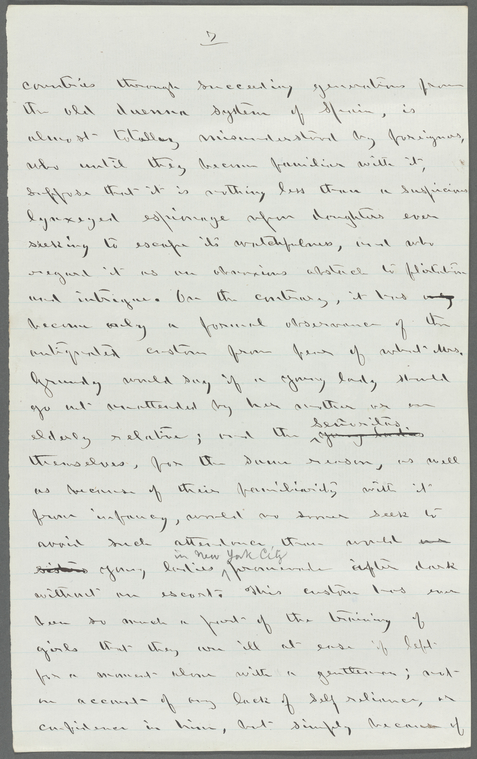 7
countries through succeeding generations from
the old duenna system of Spain, is
almost totally misunderstood by foreigners,
who until they become familiar with it,
suppose that it is nothing less than a suspicious
lynxeyed espionage upon daughters ever
seeking to escape its watchfulness, and who
regard it as an obnoxious obstacle to flirtation
and intrigue. On the contrary, it has
become only a formal observance of the
antiquated custom from fear of what Mrs.
Grundy would say if a young lady should
go out unattended by her mother or an
elderly relative; and the señoritas. young ladies
themselves, for the same reason, as well
as because of their familiarity with it
from infancy, would no sooner seek to
avoid such attendance than would
young ladies in New York City promenade after dark
without an escort. This custom has ever
been so much a part of the training of
girls that they are ill at ease if left
for a moment alone with a gentleman; not
on account of any lack of self reliance, or
confidence in him, but simply because of